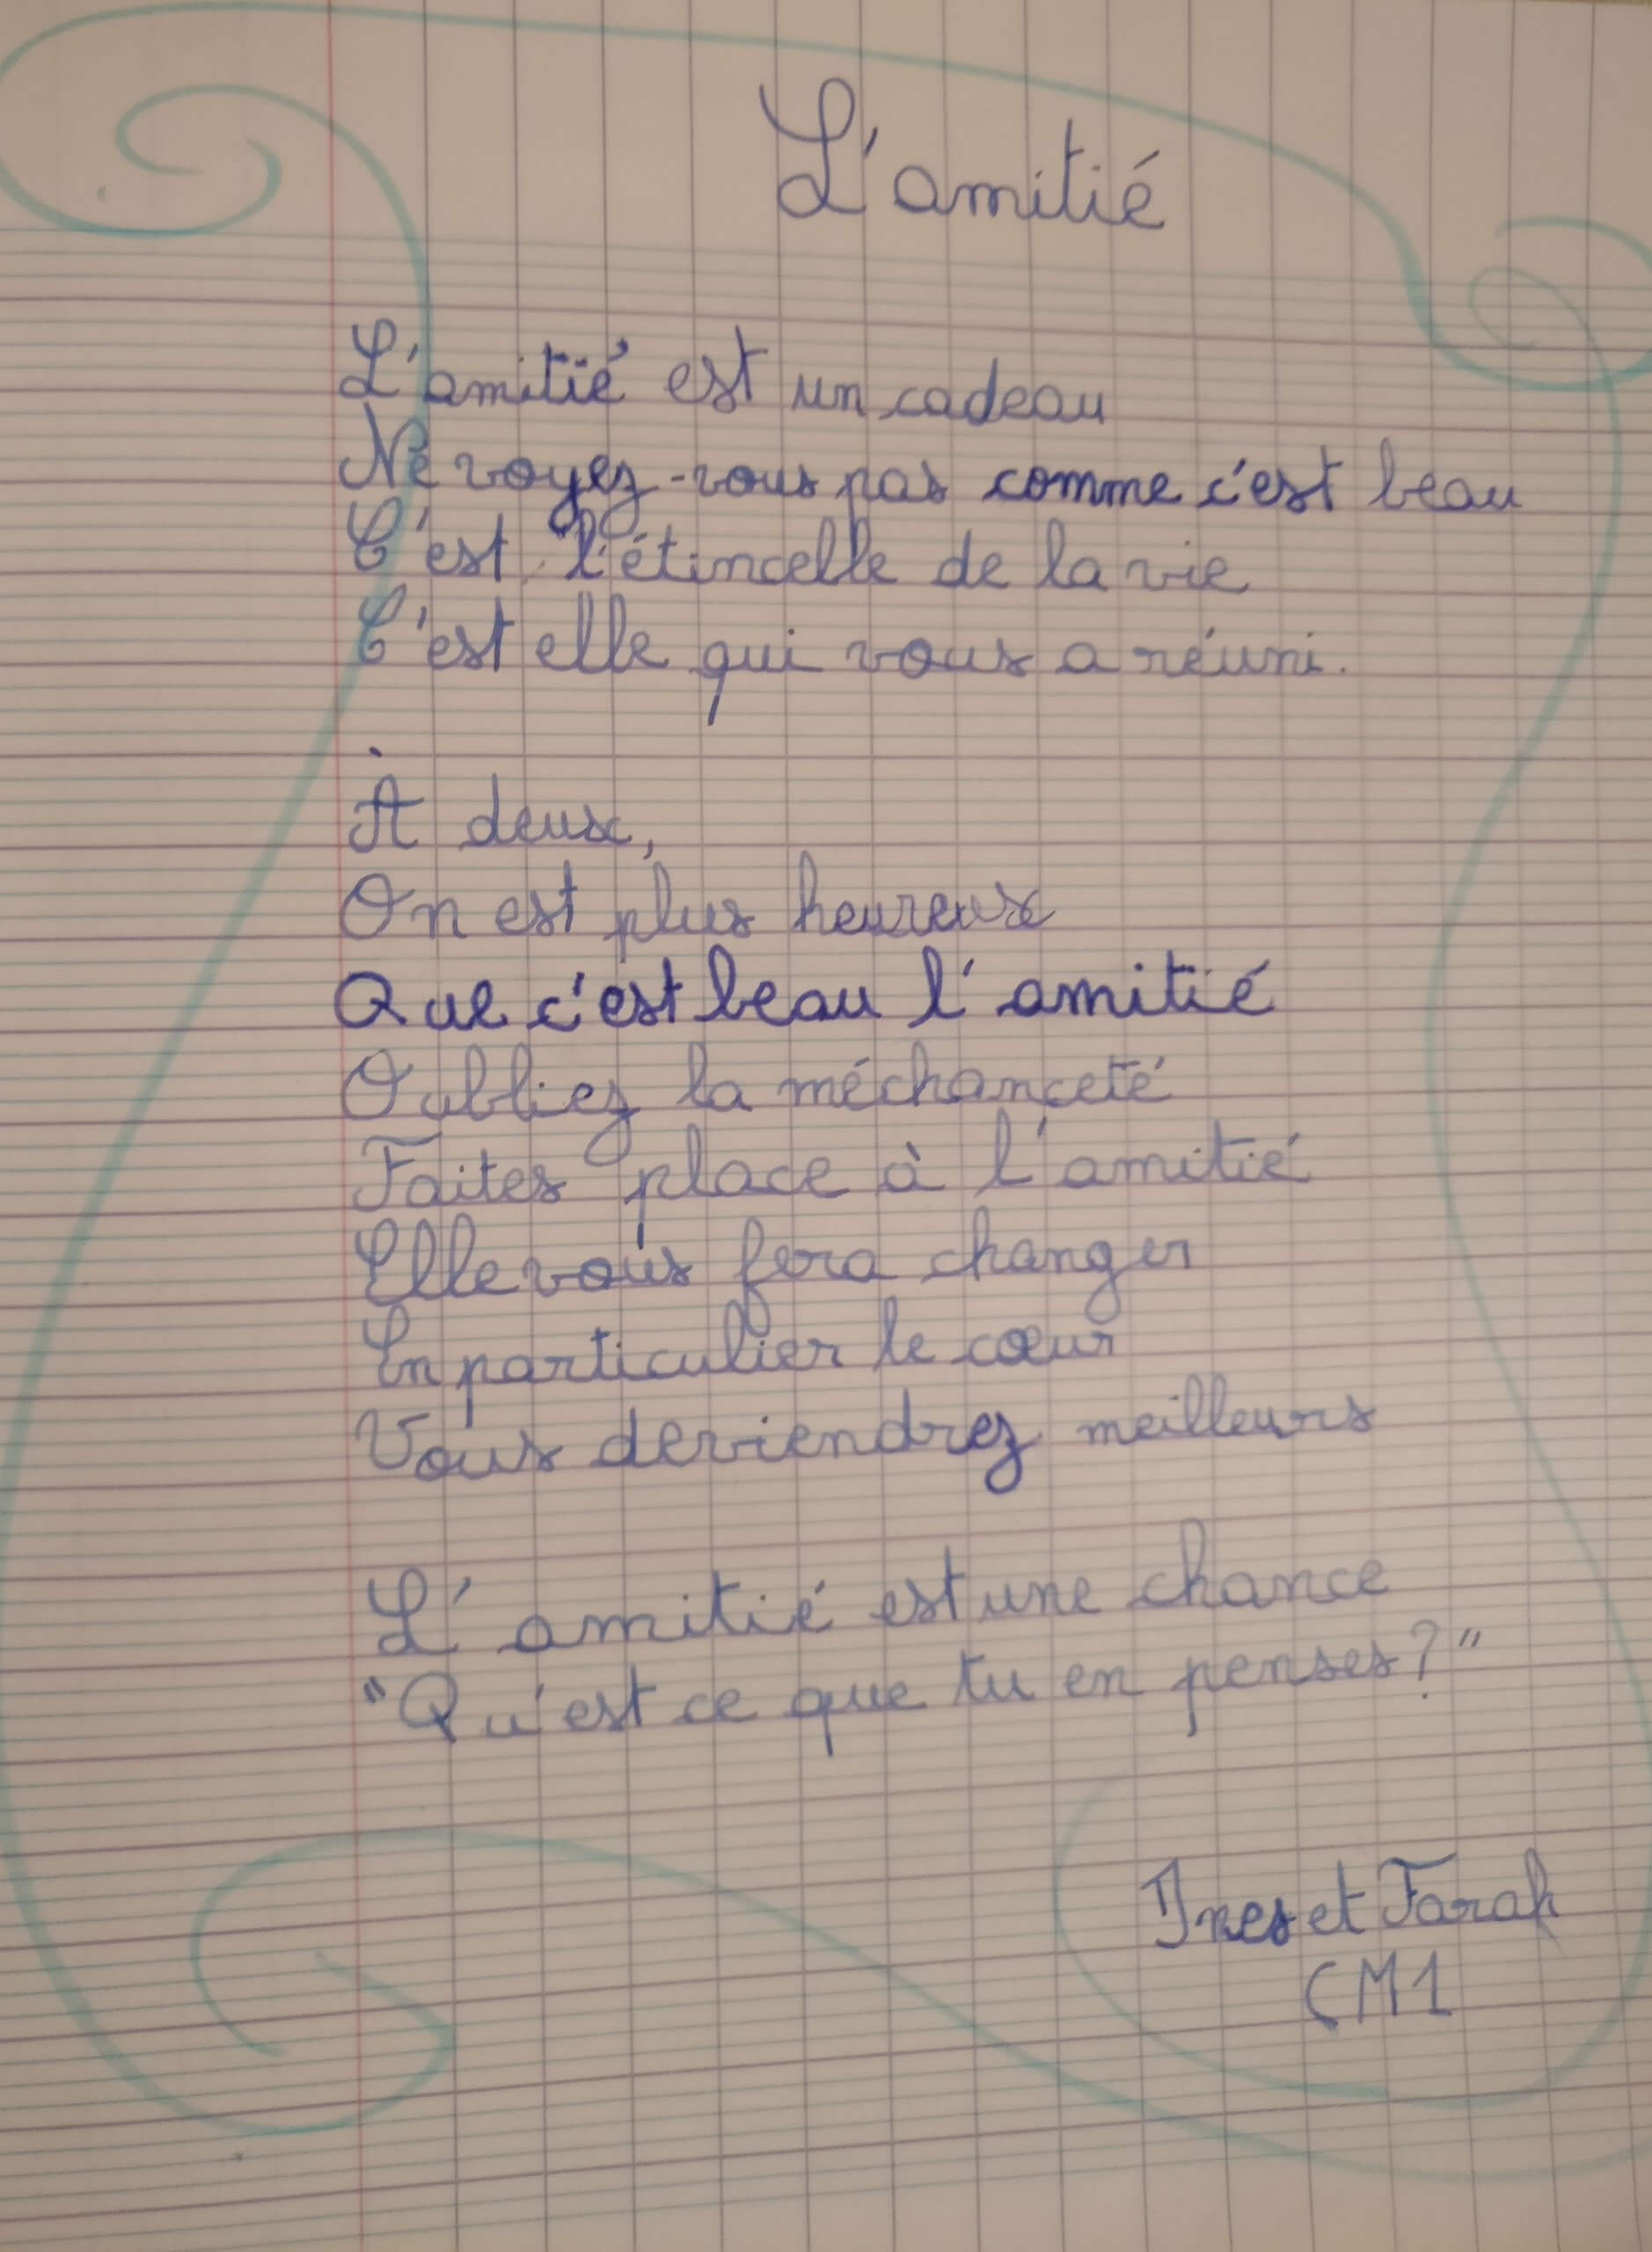 L'amitié
L'amitié est un cadeau
Ne voyez-vous pas comme c'est beau
C'est l'étincelle de la vie
C'est elle qui vous a réuni.
À deux,
On est plus heureux
Que c'est beau l'amitié
Oubliez la méchanceté
Faites place à l'amitié
Elle vous fera changer
En particulier le cœur
Vous deviendrez meilleurs
L'amitié est une chance
"Qu'est ce que tu en penses?"
Ines et Farah
CM1